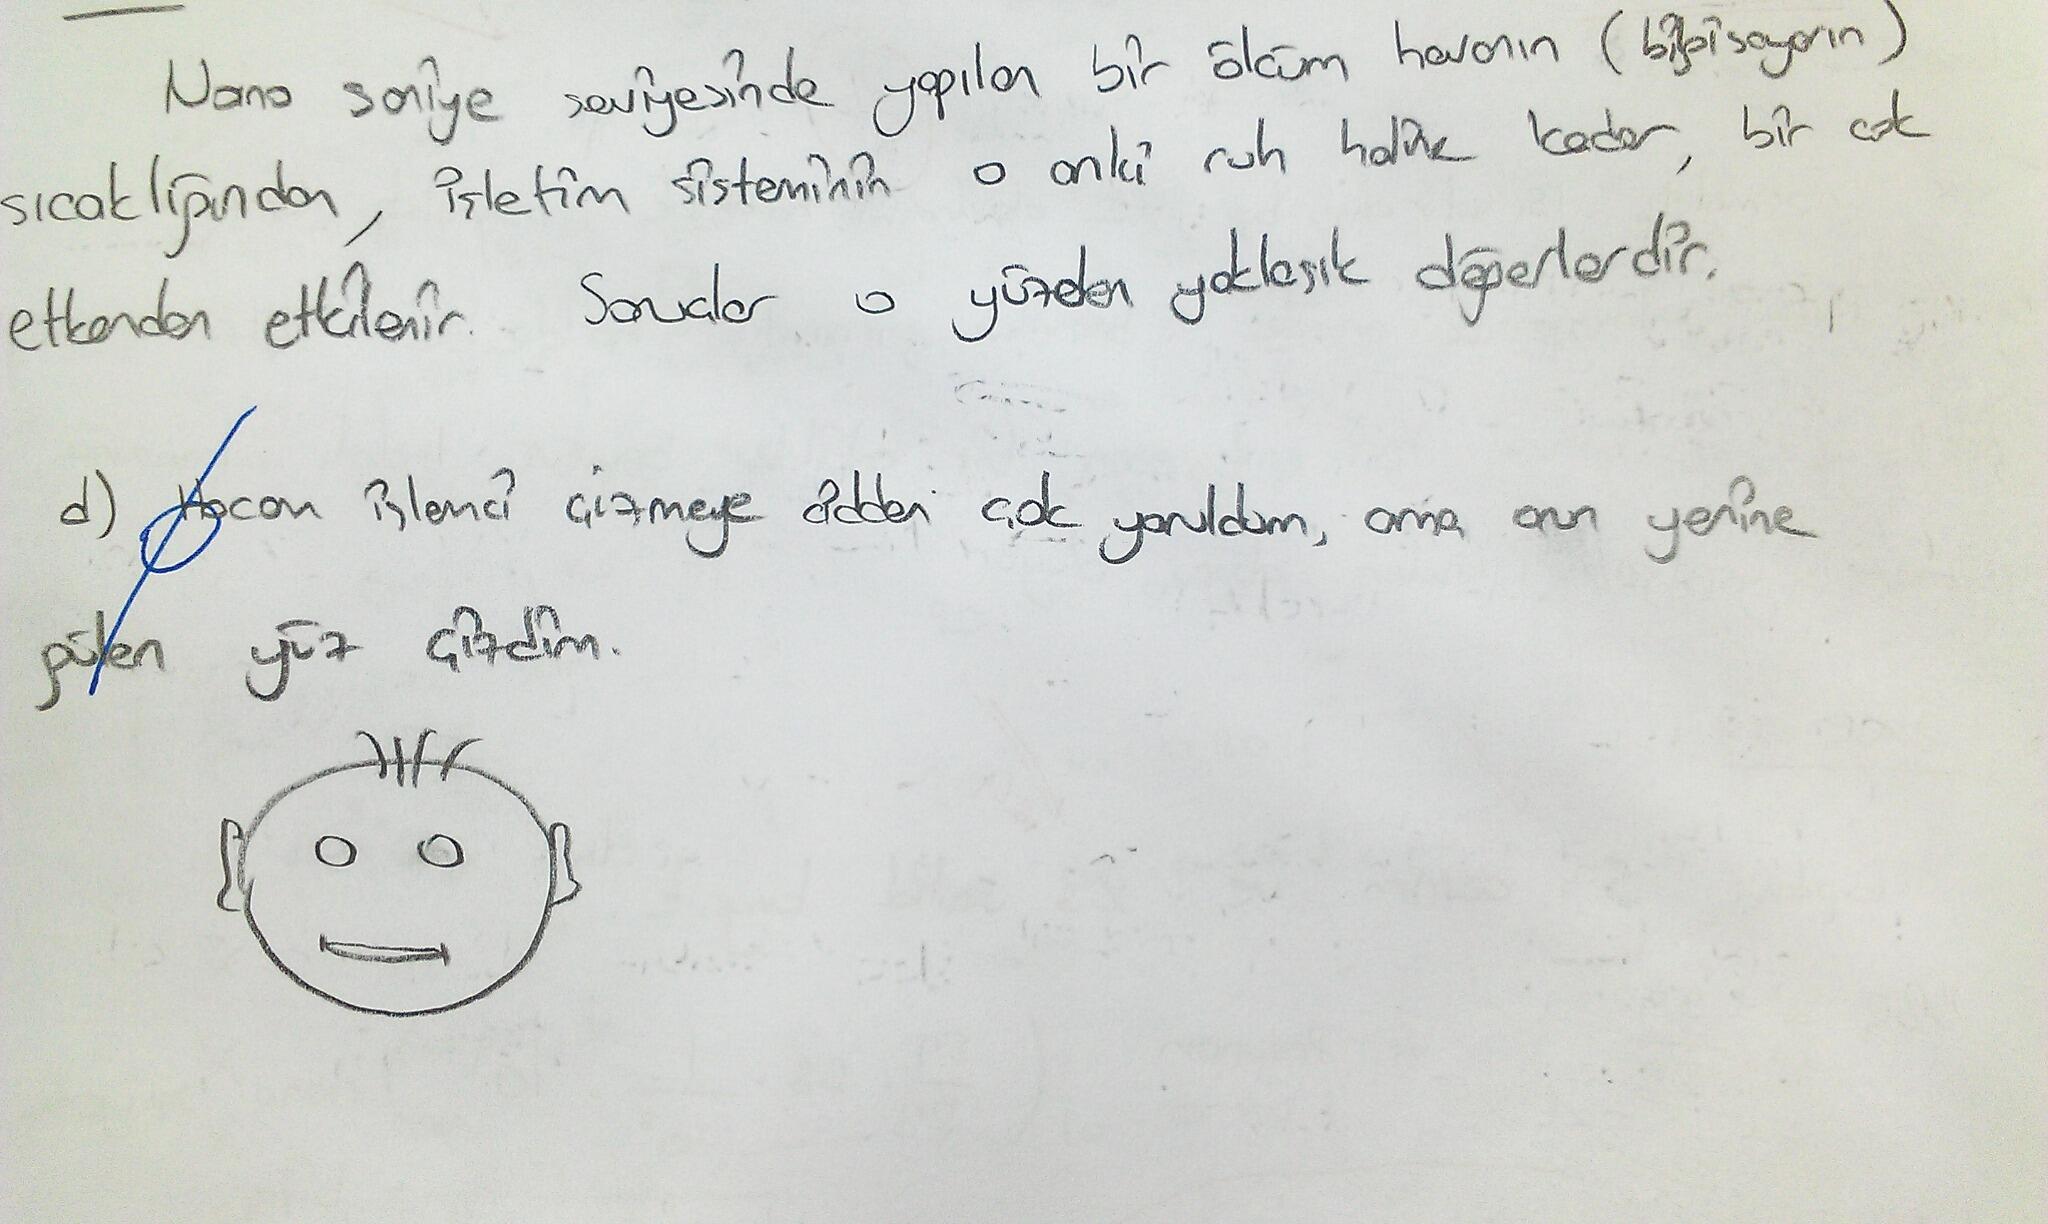 Nano saniye seviyesinde yapılan bir ölçüm havanın (bilgisayarın)
sıcaklığından, işletim sisteminin o anki ruh haline kadar, bir çok
etkenden etkilenir. Sonuçlar o yüzden yaklaşık değerlerdir.
d) Hocam işlemci çizmeye cidden çok yoruldum, ama onun yerine
gülen yüz çizdim.